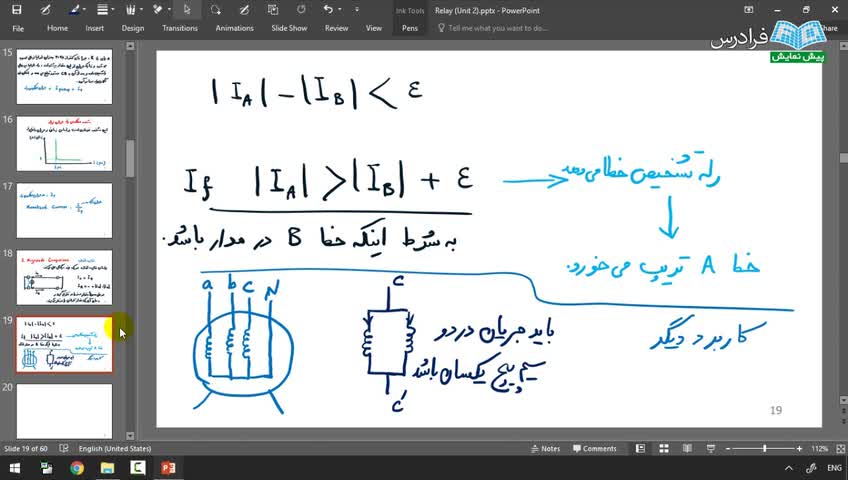 Ink Tools
Relay (Unit 2).pptx - PowerPoint
File
Home
Insert
Design
Transitions
Animations
Slide Show
Review
View
Pens
Tell me what you want to do...
Share
فرادرس
پیش نمایش
15
16
17
18
19
20
|I_A| - |I_B| < ε
If |I_A| > |I_B| + ε
رله تشخیص خطا می‌دهد
به شرط اینکه خطا B در مدار باشد.
خط A تریپ می‌خورد.
a b c N
c
c'
باید جریان در دو
سیم پیچ یکسان باشد
کاربرد دیگر
19
Slide 19 of 60
English (United States)
Notes
Comments
112%
ENG